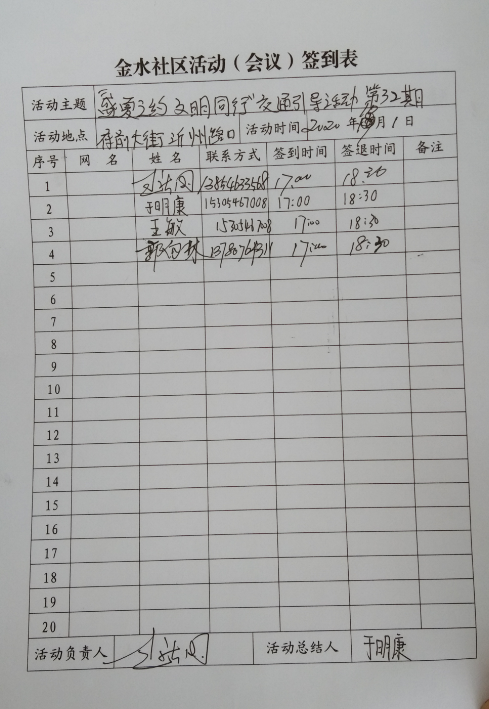 金水社区活动（会议）签到表
活动主题 之约 文明同行 交通引导活动 第32期
活动地点 府前大街沂州路口 活动时间 2020年 月1日
序号 网名 姓名 联系方式 签到时间 签退时间 备注
1 17:00 18:30
2 于明康 15305467008 17:00 18:30
3 王敏 17:00 18:30
4 17:00 18:30
5
6
7
8
9
10
11
12
13
14
15
16
17
18
19
20
活动负责人 活动总结人 于明康